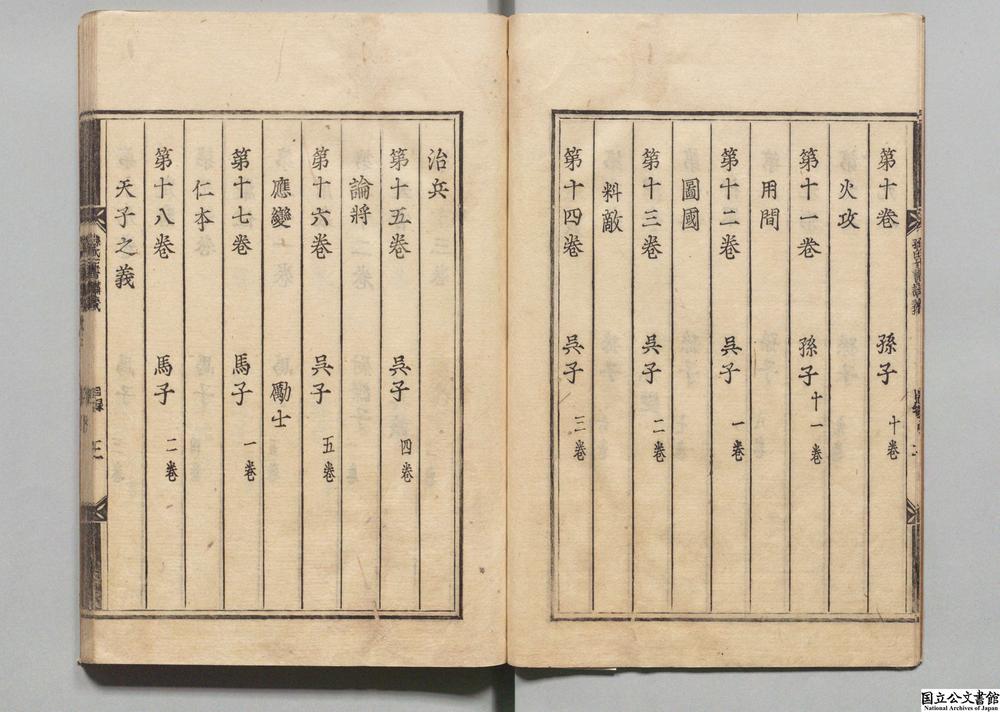 第十卷 孫子 十卷
火攻
第十一卷 孫子 十一卷
用間
第十二卷 吳子 一卷
圖國
第十三卷 吳子 二卷
料敵
第十四卷 吳子 三卷
治兵
第十五卷 吳子 四卷
論將
第十六卷 吳子 五卷
應變 勵士
第十七卷 馬子 一卷
仁本
第十八卷 馬子 二卷
天子之義
目錄
国立公文書館
National Archives of Japan